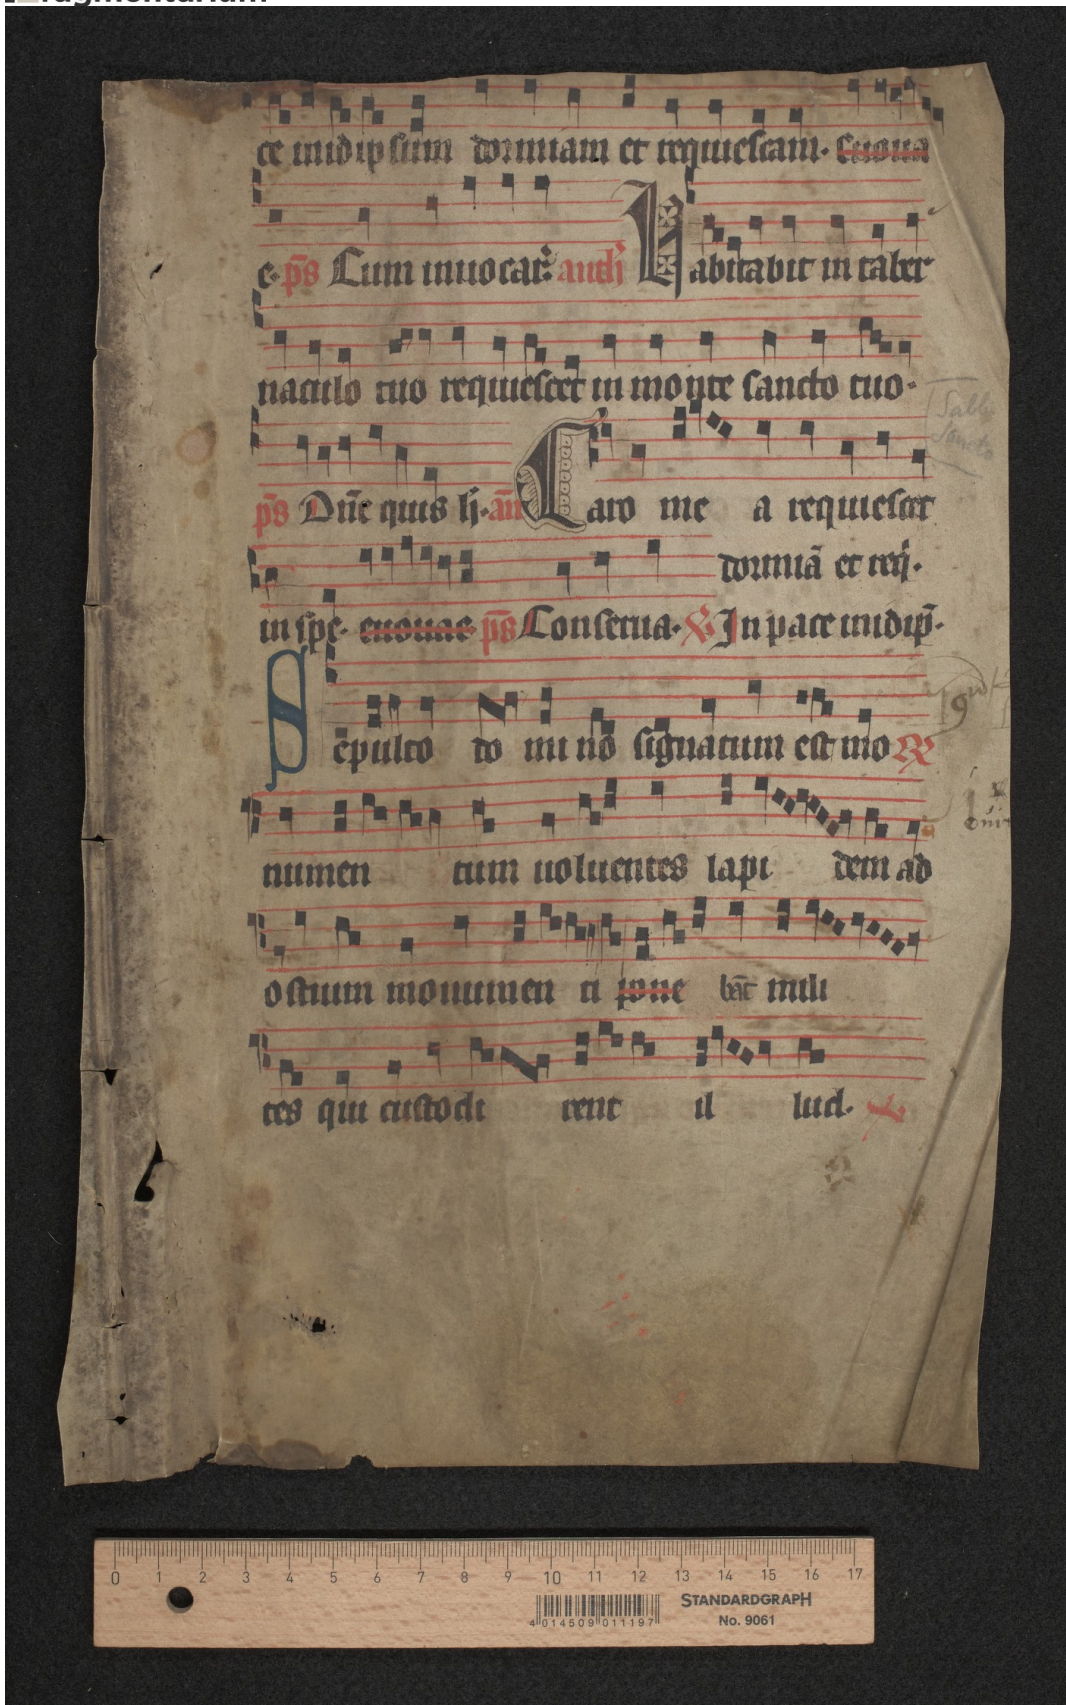 ce in id ip sum dormiam et requiescam. Euoua
e. p̄s Cum inuocar̄: anth̄ Habitabit in taber
naculo tuo requiescet in monte sancto tuo.
p̄s Dn̄e quis h̄. an̄ Caro me a requiescet
dormiā et req̄.
in spe. euouae p̄s Conserua. ℣ In pace in id ip̄.
Sepulto do mi no signatum est mo
numen tum uoluentes lapi dem ad
ostium monumen ti pone bāt mili
tes qui custodi rent il lud. ℣
Sabb
Sancto
0 1 2 3 4 5 6 7 8 9 10 11 12 13 14 15 16 17
STANDARDGRAPH
No. 9061
4 014509 011197